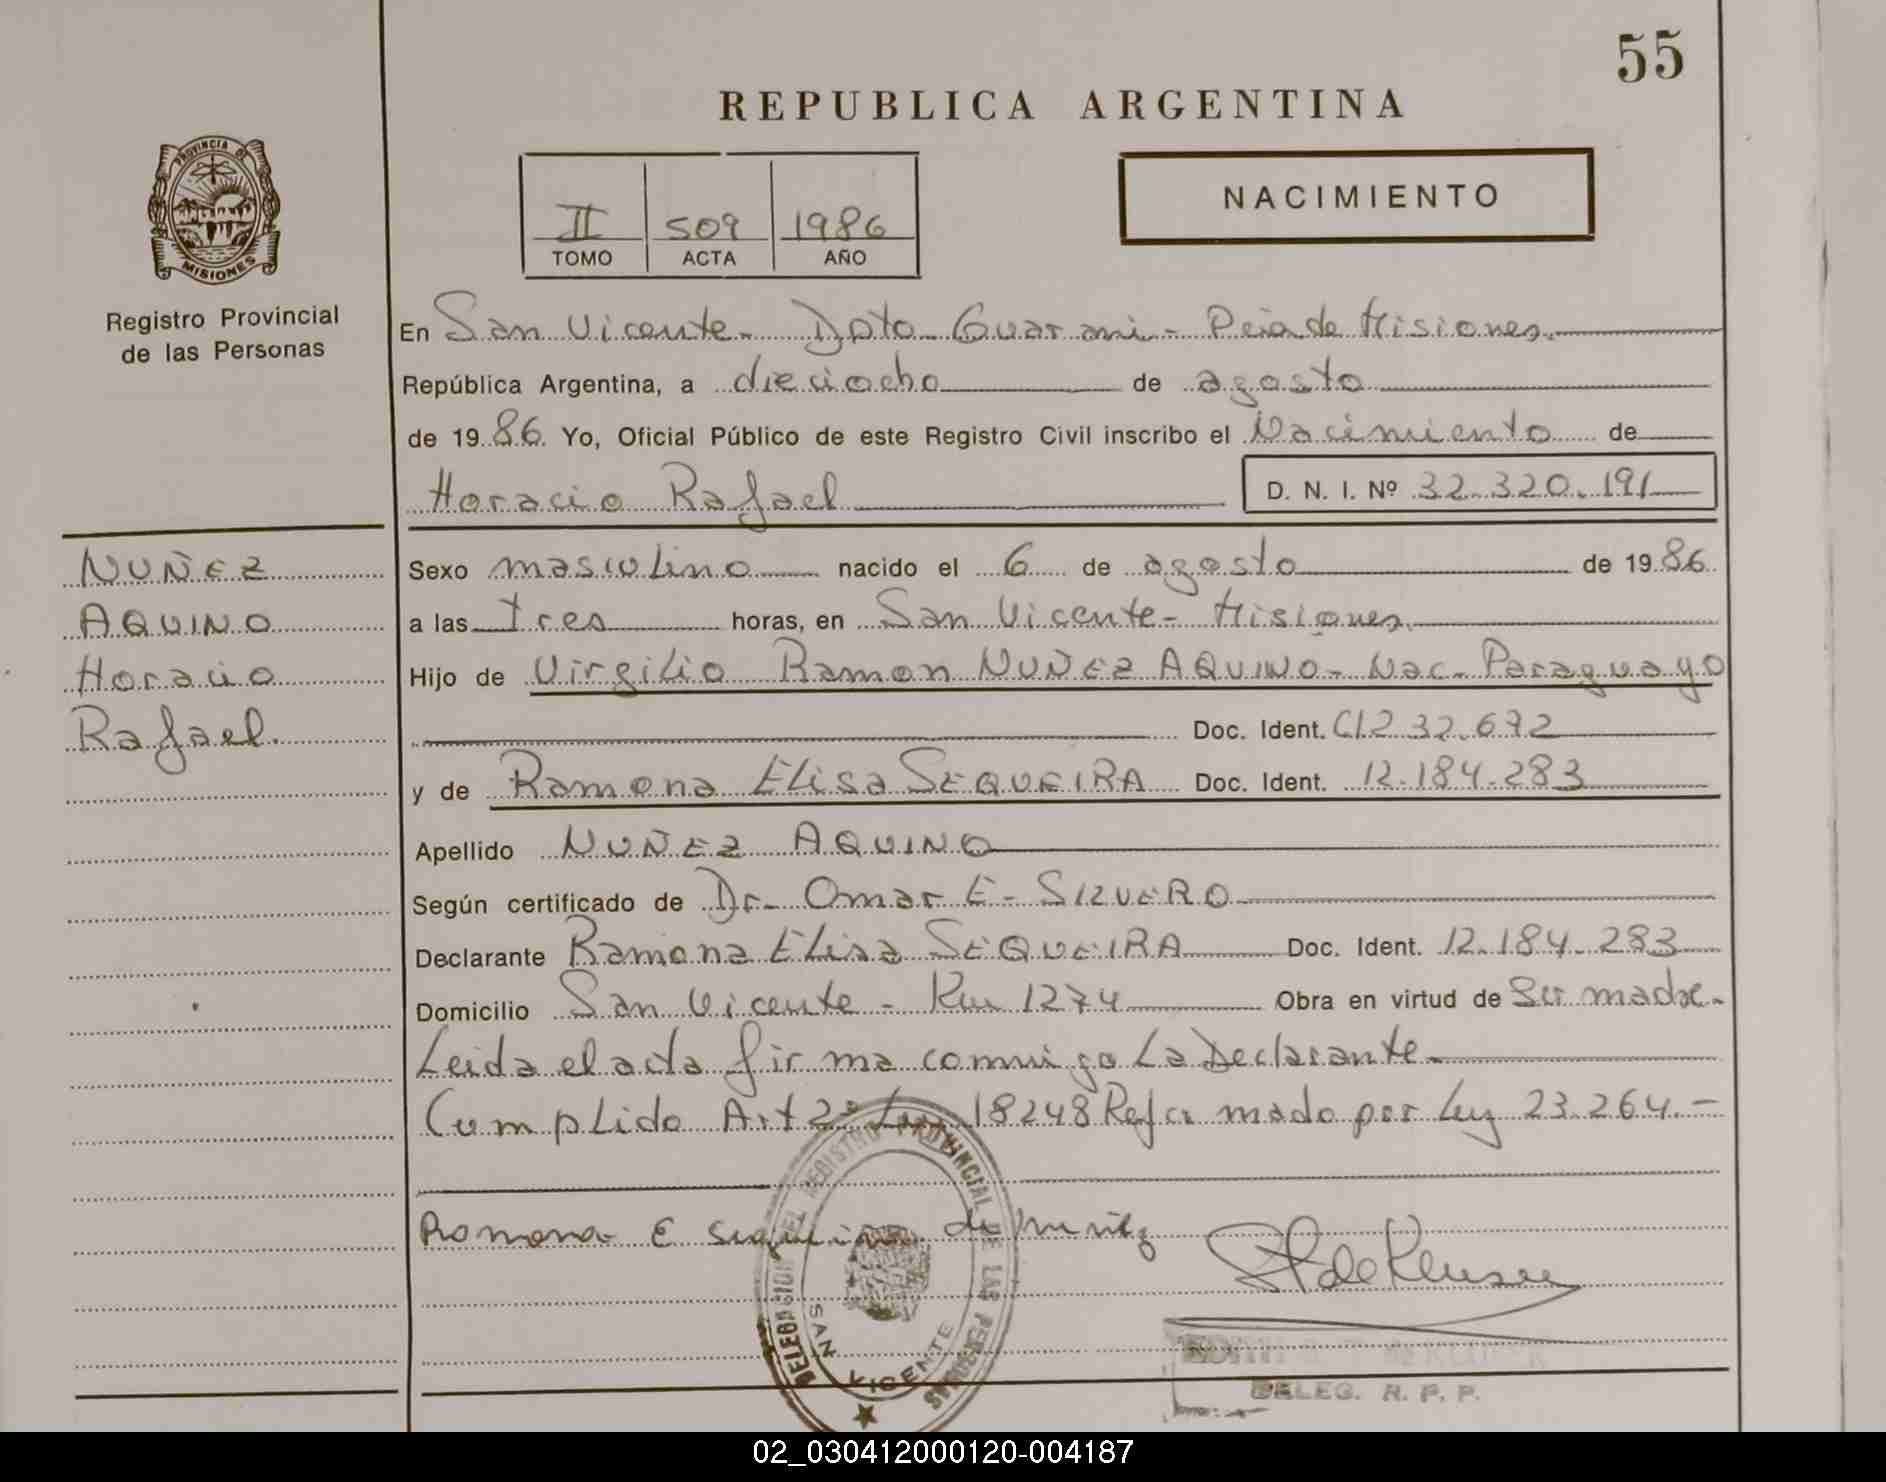 55
REPUBLICA ARGENTINA
PROVINCIA DE
MISIONES
Registro Provincial
de las Personas
II 509 1986
TOMO ACTA AÑO
NACIMIENTO
En San Vicente- Dpto Guarani- Pcia de Misiones.
República Argentina, a dieciocho de agosto
de 1986 Yo, Oficial Público de este Registro Civil inscribo el Nacimiento de
Horacio Rafael D. N. I. Nº 32.320.191
NUÑEZ
AQUINO
Horacio
Rafael
Sexo masculino nacido el 6 de agosto de 1986
a las tres horas, en San Vicente- Misiones
Hijo de Virgilio Ramon NUÑEZ AQUINO- Nac- Paraguayo
Doc. Ident.
y de Ramona Elisa SEQUEIRA Doc. Ident. 12.184.283
Apellido NUÑEZ AQUINO
Según certificado de Dr- Omar E-
Declarante Ramona Elisa SEQUEIRA Doc. Ident. 12.184.283
Domicilio San Vicente- Km 1274 Obra en virtud de Ser madre-
Leida el acta firma conmigo La Declarante-
Cumplido Art 2º Ley 18248 Reformado por Ley 23.264.-
Ramona E Sequeira de
DELEGACION DEL REGISTRO PROVINCIAL DE LAS PERSONAS
SAN VICENTE
DELEG. R. P. P.
02_030412000120-004187